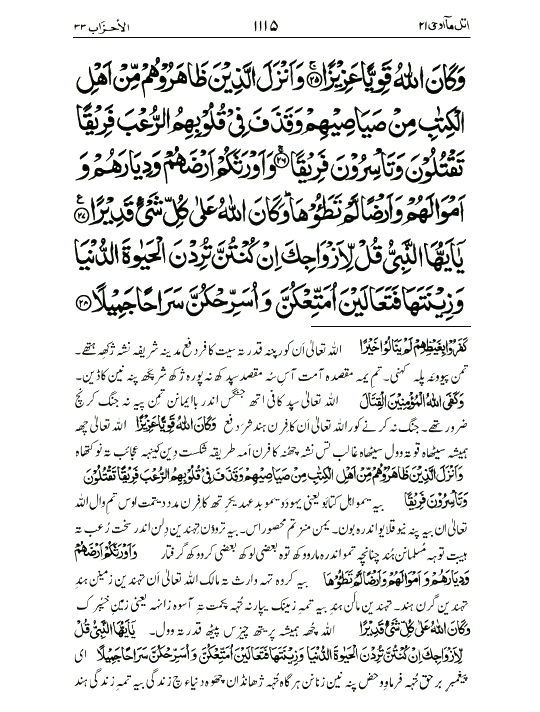 اتل مآ اوحی ۲۱ ۱۱۱۵ الأحزاب ۳۳
وَكَانَ اللهُ قَوِيًّا عَزِيْزًا ﴿۲۵﴾ وَاَنْزَلَ الَّذِيْنَ ظَاهَرُوْهُمْ مِّنْ اَهْلِ
الْكِتٰبِ مِنْ صَيَاصِيْهِمْ وَقَذَفَ فِيْ قُلُوْبِهِمُ الرُّعْبَ فَرِيْقًا
تَقْتُلُوْنَ وَتَأْسِرُوْنَ فَرِيْقًا ﴿۲۶﴾ وَاَوْرَثَكُمْ اَرْضَهُمْ وَدِيَارَهُمْ وَ
اَمْوَالَهُمْ وَاَرْضًا لَّمْ تَطَـُٔوْهَا وَكَانَ اللهُ عَلٰى كُلِّ شَيْءٍ قَدِيْرًا ﴿۲۷﴾
يٰٓاَيُّهَا النَّبِيُّ قُلْ لِّاَزْوَاجِكَ اِنْ كُنْتُنَّ تُرِدْنَ الْحَيٰوةَ الدُّنْيَا
وَزِيْنَتَهَا فَتَعَالَيْنَ اُمَتِّعْكُنَّ وَاُسَرِّحْكُنَّ سَرَاحًا جَمِيْلًا ﴿۲۸﴾
كَفَرُوْا بِغَيْظِهِمْ لَمْ يَنَالُوْا خَيْرًا اللہ تعالیٰ ان کور پنہ قدرتہ سیت کافر دفع مدینہ شریفہ نشہ
تمن پیوو نہ پلہ کہنی۔ تم یمہ مقصدہ آمت آس تہ مقصد سپدکھ نہ پورہ
وَكَفَى اللهُ الْمُؤْمِنِيْنَ الْقِتَالَ اللہ تعالیٰ سپد کافی اتھ جنگس اندر با ایمانن تمن پیہ نہ جنگ کرنچ
ضرورتھے۔ جنگ نہ کرنے کور اللہ تعالیٰ ان کافرن ہند شر دفع وَكَانَ اللهُ قَوِيًّا عَزِيْزًا اللہ تعالیٰ چھ
ہمیشہ سیٹھاہ قوتہ وول سیٹھاہ غالب تس نشہ چھنہ کافرن امہ طریقہ شکست دین کینہہ عجائب تہ نو کتھاہ
وَاَنْزَلَ الَّذِيْنَ ظَاهَرُوْهُمْ مِّنْ اَهْلِ الْكِتٰبِ مِنْ صَيَاصِيْهِمْ وَقَذَفَ فِيْ قُلُوْبِهِمُ الرُّعْبَ فَرِيْقًا تَقْتُلُوْنَ
وَتَأْسِرُوْنَ فَرِيْقًا بیہ یمو اہل کتابو یعنی یہودو یمو بد عہدی کرتھ کافرن مدد دیتمت اوس تم وال اللہ
تعالیٰ ان بیہ پنہ نیو قلایو اندرہ بون۔ یمن منز تم محصور اس۔ بیہ تروون تہندین دلن اندر سخت رعب تہ
ہیبت توہہ مسلمانن ہند چنانچہ تمو اندرہ مارووکھ توہہ بعضی لوکھ بعضی کرووکھ گرفتار وَاَوْرَثَكُمْ اَرْضَهُمْ
وَدِيَارَهُمْ وَاَمْوَالَهُمْ وَاَرْضًا لَّمْ تَطَـُٔوْهَا بیہ کردہ تہہ وارث تہ مالک اللہ تعالیٰ ان تہندین زمینن ہند
تہندین گرن ہند۔ تہندین مالن ہند بیہ تمہ زمینک یپار نہ تہہ پکمت تہ آسوہ زانہہ یعنی زمین خیبرک
وَكَانَ اللهُ عَلٰى كُلِّ شَيْءٍ قَدِيْرًا اللہ چھہ ہمیشہ پریتھ چیزس پیٹھ قدرتہ وول۔ يٰٓاَيُّهَا النَّبِيُّ قُلْ
لِّاَزْوَاجِكَ اِنْ كُنْتُنَّ تُرِدْنَ الْحَيٰوةَ الدُّنْيَا وَزِيْنَتَهَا فَتَعَالَيْنَ اُمَتِّعْكُنَّ وَاُسَرِّحْكُنَّ سَرَاحًا جَمِيْلًا ای
پیغمبر برحق تہہ فرماووض پنہ نین زنانن ہرگاہ تہہ ژھانڈان چھوہ دنیاءچ زندگی بیہ تمہ زندگی ہند